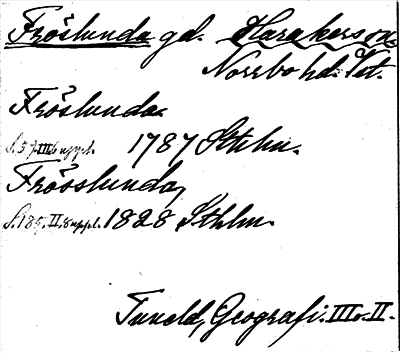 Fröslunda gd. Harakers sn.
Norrbo hd. Vst.
Fröslunda.
S. 57. III. 6 uppl. 1787 Sthlm.
Frösslunda,
S. 185. II. 8 uppl. 1828 Sthlm.
Tuneld, Geografi. III o. II.